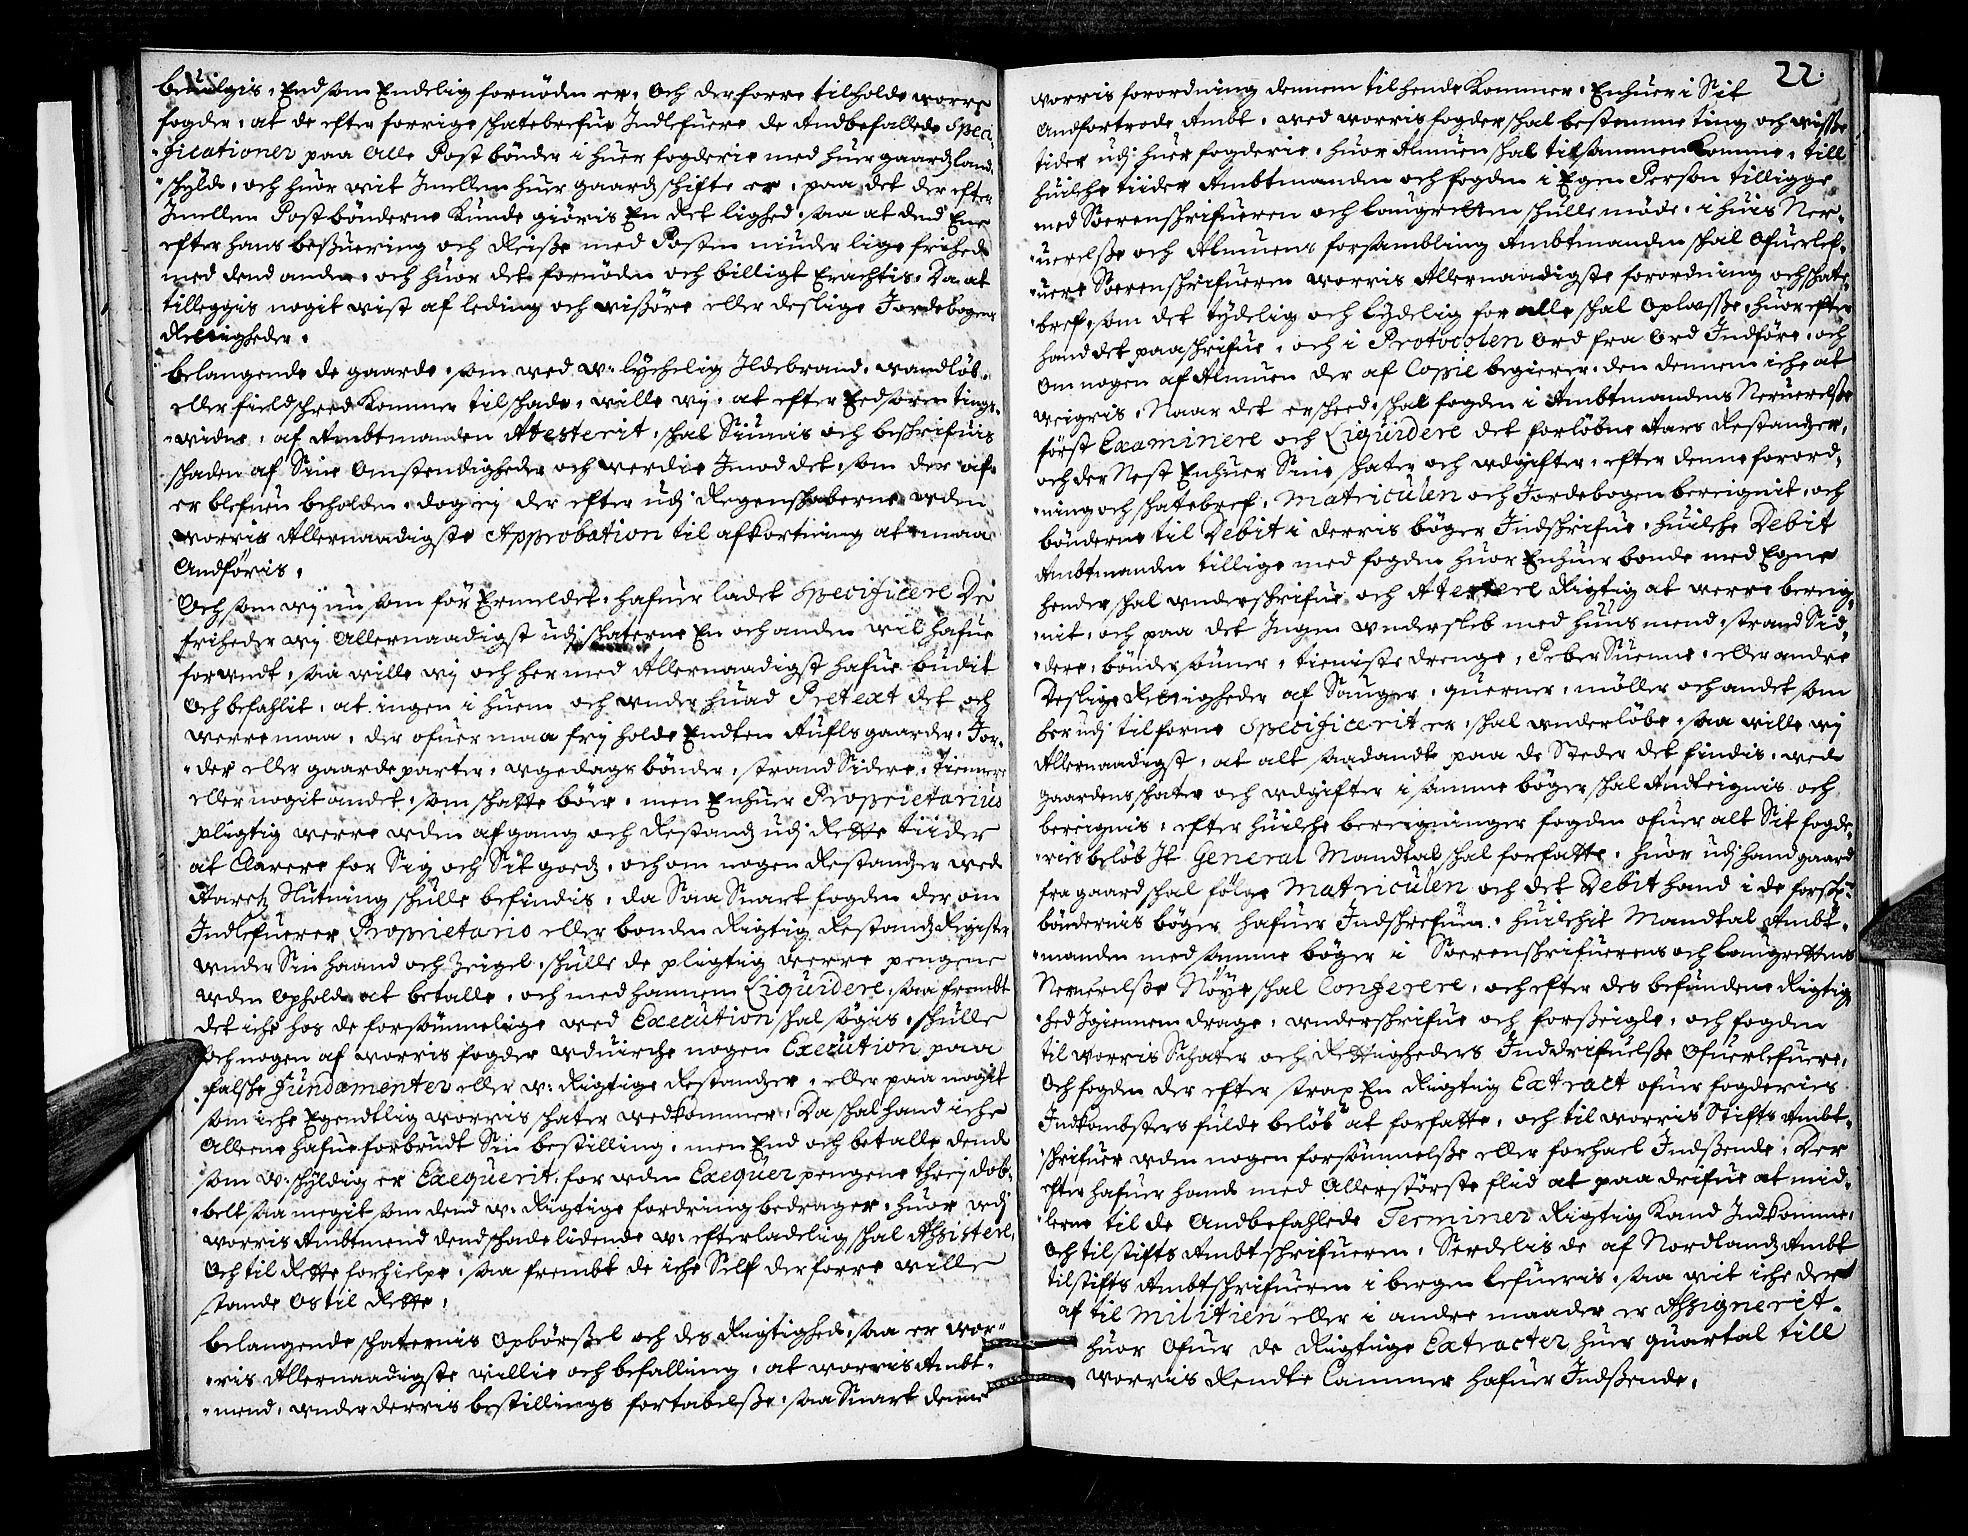 beuilgis, End som Endelig fornöden er, Och derforre tilholde worre
fogder, at de efter forrige schatebrefue Indlefuere de Andbefallede Speci-
ficationer paa alle Post bönder i huer fogderie med huer gaardz land-
schyld, och huor wit Imellem huer gaardz schifte er, paa det der efter
Imellem Postbönderne kunde giöris En Ret lighed, saa at dend Ene
efter hans besuering och Reise med Posten niuder lige frihed
med dend anden, och huor det fornöden och billigt Erachtis, Da at
tilleggis nogit wist af leding och wisöre eller deslige Jordebogens
Rettigheder.
Belangende de gaarde, som ved w-lychelig Ildebrand, wandlöb,
eller fieldschred kommer til schade, wille wy, at efter Eedsoren tings-
widne, af Ambtmanden Atesterit, schal Siunis och beschrifuis
schaden af Sine omstendigheder och werdie Imod det, som der af
er blefuen beholden, dog ej der efter udj Regenschaberne uden
worris Allernaadigste Approbation til afkortning at maa
Andföris.
Och som wy nu, som för Ermeldet, hafuer ladet Specificere De
friheder wy Allernaadigst udj schaterne En och anden wil hafue
forundt, saa wille wy och her med Allernaadigst hafue budit
och befahlit, at ingen i huem och under huad Pretext det och
werre maa, der ofuer maa fry holde Endten Aufls gaarder, Jor-
der eller gaarde parter, ugedags bönder, strand Sidere, Tiennere
eller nogit andet, som schatte bör, men Enhuer Proprietarius
pligtig werre uden afgang och Restandz udj Rette tiider
at Clarere for Sig och Sit goedz, och om nogen Restandzer wed
Aaretz Slutning schulle befindis, da Saa Snart fogden der om
Indlefuerer Proprietario eller bonden Rigtig Restandz Register
under Sin haand och Zeigel, schulle de pligtig werre pengene
uden Ophold at betalle, och med hannem Liquidere, saa fremt
det iche hos de forsömmelige wed Execution schal sögis, schulle
och nogen af worris fogder uduirche nogen Execution paa
falsche fundamenter eller w-Rigtige Restandzer, eller paa nogit
som iche Egendtlig worris schater wedkommer, Da schal hand iche
Alleene hafue forbrudt Sin bestilling, men End och betalle dend
som w-schyldig er Exequerit, for uden Exequer pengene threj dob-
belt saa megit som dend w-Rigtige fordring bedrager, huor udj
worris Ambtmend dend schade lidende w-efterladelig schal Assistere,
och til Rette forhielpe, saa fremt de iche Self derforre wille
stande Os til Rette.
Belangende schaternis Opbörsel och des Rigtighed, saa er wor-
ris Allernaadigste willie och befalling, at worris Ambt-
mend, under derris bestillings fortabelse, saa Snart denne
22.
worris forordning dennem til hende kommer, Enhuer i Sit
Andfortrode Ambt, med worris fogder schal bestemme ting och wisse
tider udj huer fogderie, huor Almuen schal tilsammen komme, till
huilche tiider Ambtmanden och fogden i Egen Person tillige
med Sorenschrifueren och laugretten schulle möde, i huis Ner-
uerelse och Almuens forsambling Ambtmanden schal Ofuerlef-
uere Sorenschrifueren worris Allernaadigste forordning och schate
bref, som det tydelig och lydelig for alle schal oplæse, huor efter
hand det paaschrifue, och i Protocolen Ord fra Ord Indföre, och
om nogen af Almuen der af Copie begierer, den dennem iche at
weigris, Naar det er scheed, schal fogden i Ambtmandens Neruerelse
först Examinere och Liquidere det forlöbne Aars Restandzer,
och der Nest Enhuer Sine schater och udgifter, efter denne forord-
ning och schatebref, Matriculen och Jordebogen bereignit, och
bönderne til Debit i derris böger Indschrifue, huilche Debit
Ambtmanden tillige med fogden huor Enhuer bonde med Egne
hender schal underschrifue och Atestere Rigtig at werre bereig-
nit, och paa det Ingen underslæb med huusmend, strand Sid-
dere, bönder söner, tieniste drenge, Peber Suenne, eller andre
Deslige Rettigheder af Sauger, querner, möller och andet som
her udj tilforne Specificerit er, schal underlöbe, saa wille wy
Allernaadigst, at alt saadandt paa de Steder det findis, wed
gaardens schater och udgifter i samme böger schal Andteignis och
bereignis, efter huilche bereigninger fogden ofuer alt Sit fogde-
ries belöb It General Mandtal schal forfatte, huor udj hand gaard
fra gaard schal fölge Matriculen och det Debit hand i de forsch:
böndernis böger hafuer Indschrefuen, huilchit Mandtal Ambt-
manden med samme böger i Sorenschrifuerens och laugrettens
Neruerelse Nöye schal Conferere, och efter des befundene Rigtig-
hed Igiennem drage, underschrifue och forseigle, och fogden
til worris Schater och Rettigheders Inddrifuelse ofuerlefuere,
Och fogden der efter strax En Rigtig Extract ofuer fogderies
Indkombsters fulde belöb at forfatte, och til worris Stifts Ambt-
schrifuer uden nogen forsömmelse eller forhael Indsende; Der
efter hafuer hand med Allerstörste flid at paa drifue at mid-
lerne til de Andbefahlede Terminer Rigtig kand Indkomme,
Och til stifts Ambtschrifueren, Serdelis de af Nordlandz Ambt
til stifts Ambtschrifueren i bergen lefueris, saa wit iche der
af til Militien eller i andre maader er Assignerit.
huor ofuer de Rigtige Extracter huer quartal till
worris Rendte Cammer hafuer Indsende.